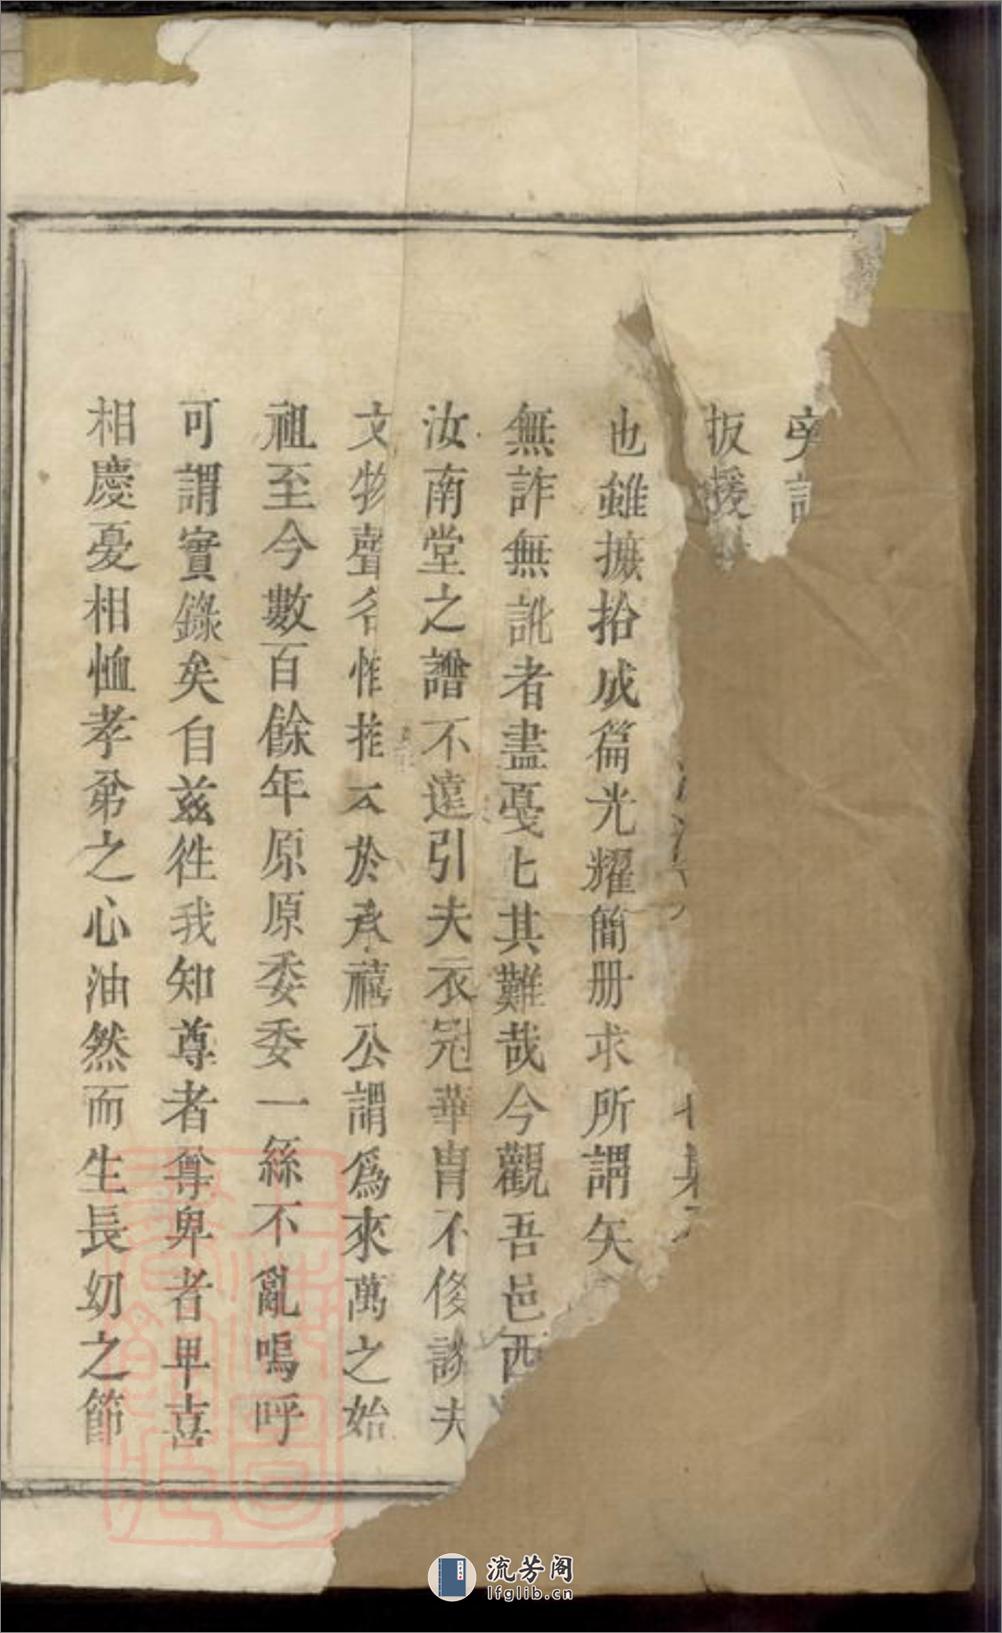 扳援
也雖摭拾成篇光耀簡册求所謂矢
無詐無訛者盡戞乜其難哉今觀吾邑西
汝南堂之譜不遠引夫衣冠華胄不侈談夫
文物聲名惟推本於承禧公謂爲來萬之始
祖至今數百餘年原原委委一絲不亂嗚呼
可謂實錄矣自兹徃我知尊者尊卑者卑喜
相慶憂相恤孝弟之心油然而生長幼之節
上海圖書館藏
流芳阁
lfglib.cn